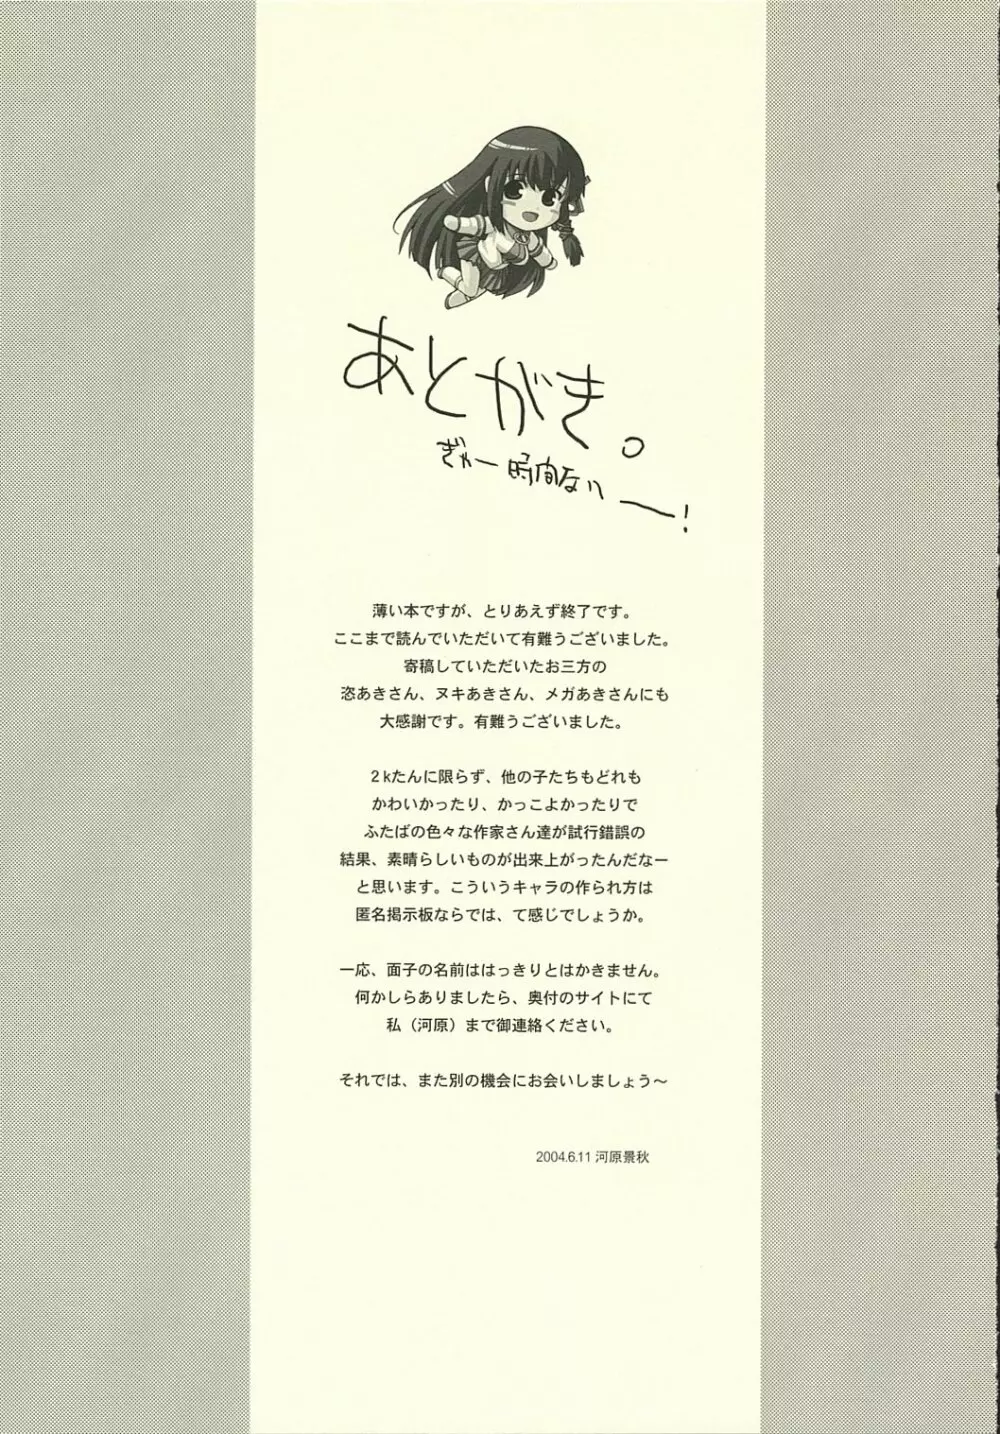 あとがき。
ぎゃー時間ないー！
薄い本ですが、とりあえず終了です。
ここまで読んでいただいて有難うございました。
寄稿していただいたお三方の
恣あきさん、ヌキあきさん、メガあきさんにも
大感謝です。有難うございました。
２kたんに限らず、他の子たちもどれも
かわいかったり、かっこよかったりで
ふたばの色々な作家さん達が試行錯誤の
結果、素晴らしいものが出来上がったんだなー
と思います。こういうキャラの作られ方は
匿名掲示板ならでは、て感じでしょうか。
一応、面子の名前ははっきりとはかきません。
何かしらありましたら、奥付のサイトにて
私（河原）まで御連絡ください。
それでは、また別の機会にお会いしましょう～
2004.6.11 河原景秋